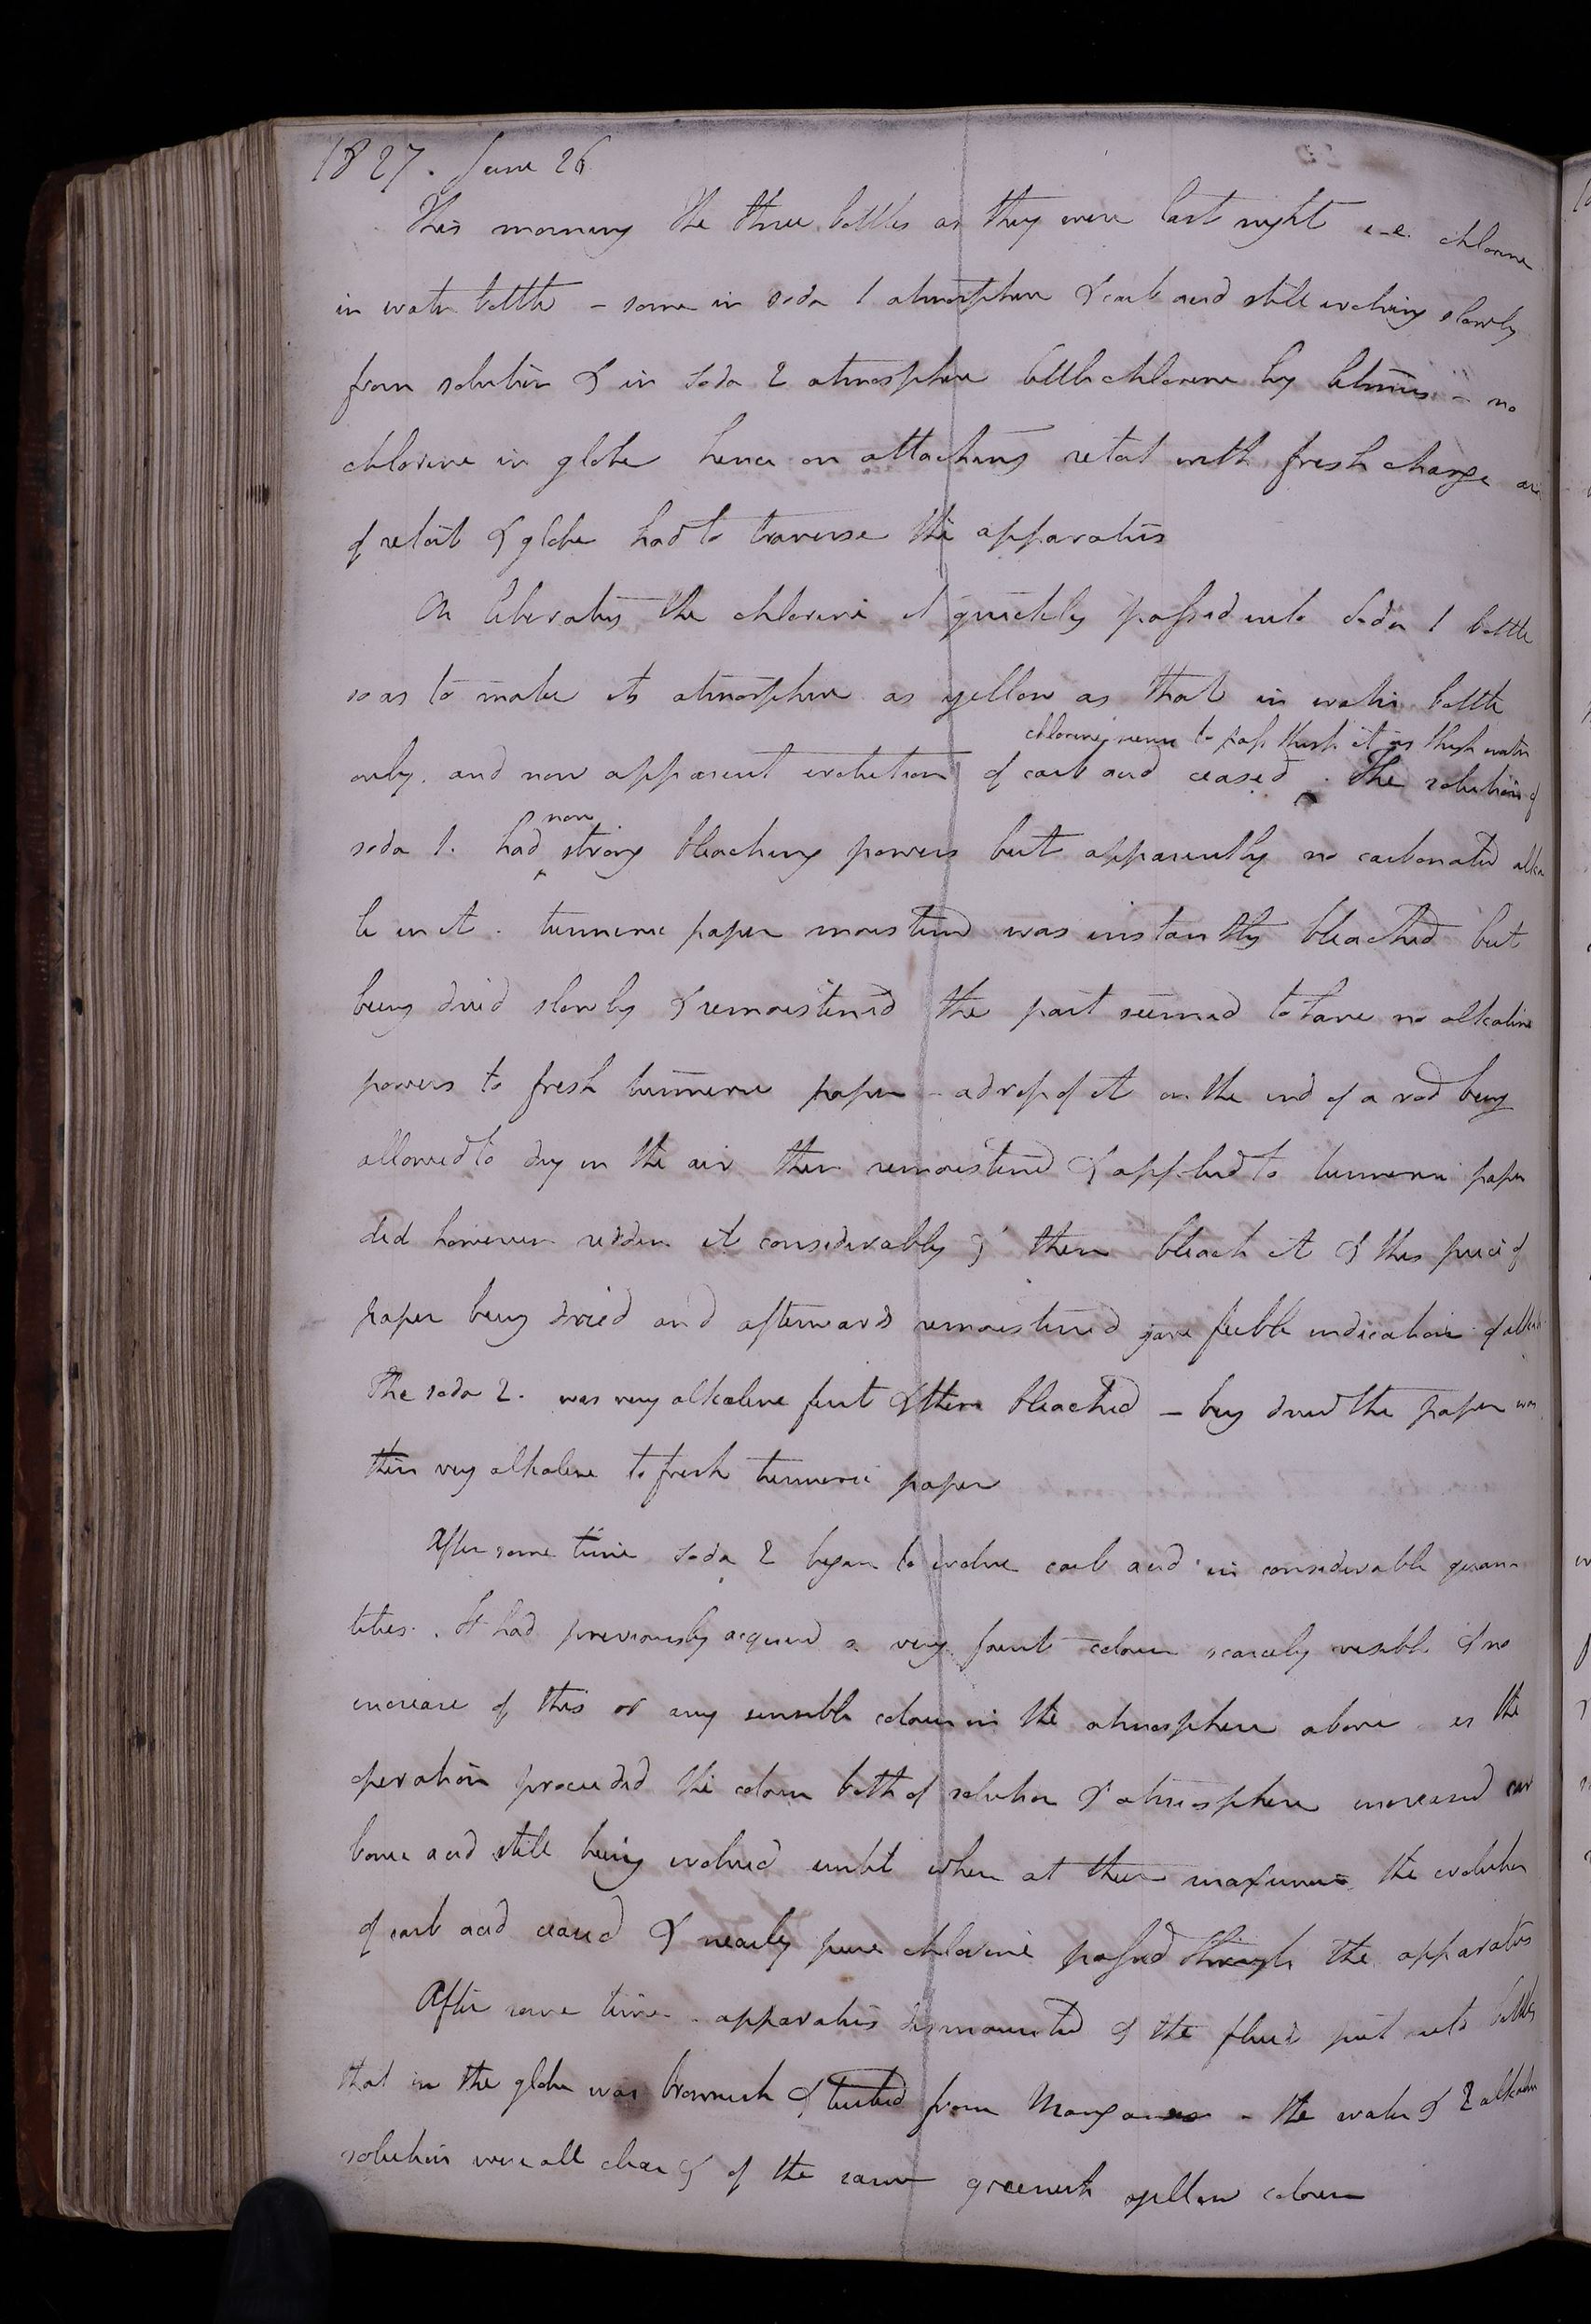 1827. June 26
This morning the three bottles as they were last night i.e. chlorine
in water bottle - some in soda 1 atmosphere & carb acid still evolving slowly
from solution & in soda 2 atmosphere little chlorine by litmus - no
chlorine in globe hence on attaching retort with fresh charge air
of retort & globe had to traverse the apparatus
On liberating the chlorine it quickly passed into soda 1 bottle
so as to make its atmosphere as yellow as that in water bottle
chlorine, seems to pass thrugh it as thrugh water
only. and now apparent evolution of carb acid ceased. The solution of
now
soda 1. had strong bleaching powers but apparently no carbonated alka
li in it. turmeric paper moistened was instantly bleached but
being dried slowly & remoistened the part seemed to have no alkaline
powers to fresh turmeric paper - a drop of it on the end of a rod being
allowed to dry in the air then remoistened & applied to turmeric paper
did however redden it considerably & then bleach it & this piece of
paper being dried and afterwards remoistened gave feeble indication of alkali
The soda 2. was very alkaline first & then bleached - being dried the paper was
then very alkaline to fresh turmeric paper
After some time soda 2 began to evolve carb acid in considerable quan
tities. It had previously acquired a very faint colour scarcely visible & no
increase of this or any sensible colour in the atmosphere above. as the
operation proceeded the colour both of solution & atmosphere increased car
bonic acid still being evolved until when at their maximum the evolution
of carb acid ceased & nearly pure chlorine passed through the apparatus
After some time apparatus dismounted & the fluids put into bottles
that in the globe was brownish & turbid from Manganese - the water & 2 alkaline
solutions were all clear & of the same greenish yellow colour